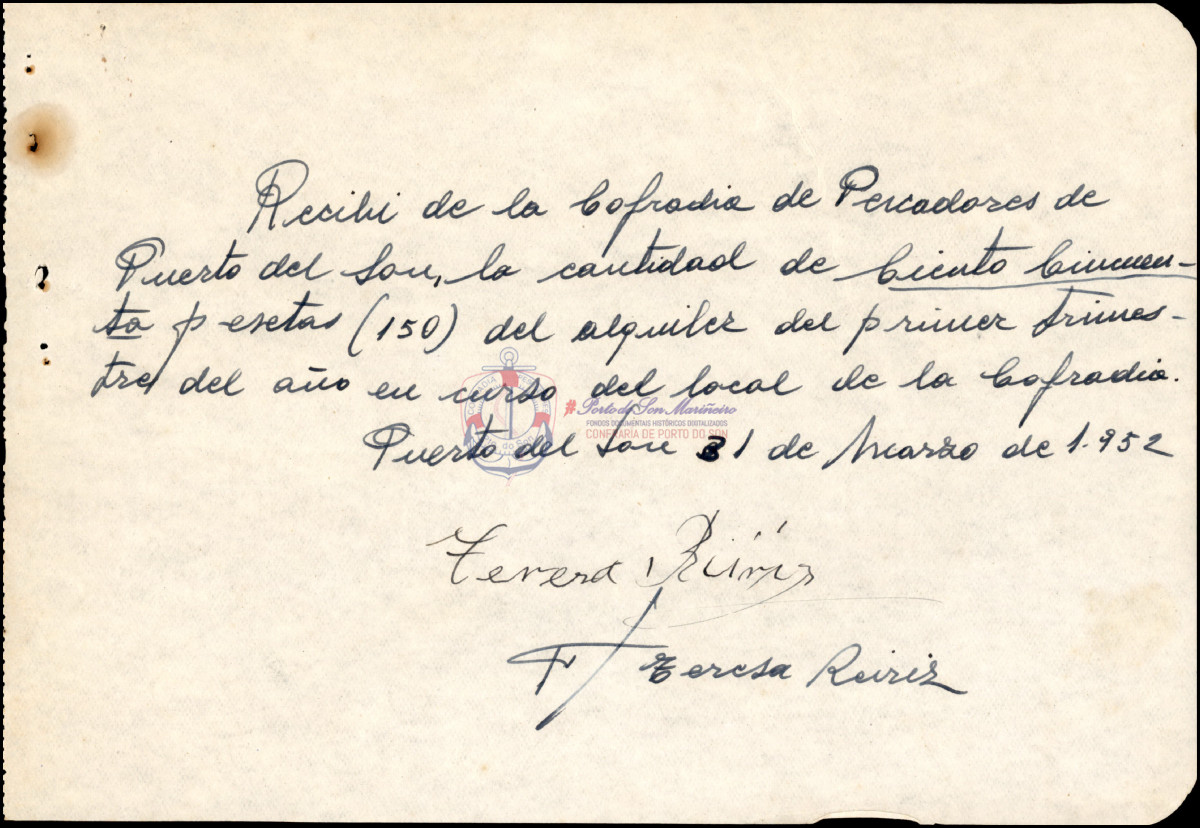 Recibi de la Cofradia de Pescadores de
Puerto del Son, la cantidad de Ciento Cincuen-
ta pesetas (150) del alquiler del primer trimes-
tre del año en curso del local de la Cofradia.
#Porto do Son Mariñeiro
FONDOS DOCUMENTAIS HISTÓRICOS DIXITALIZADOS
CONFRARÍA DE PORTO DO SON
Puerto del Son 31 de Marzo de 1.952
Teresa Ruiriz
Teresa Ruiriz